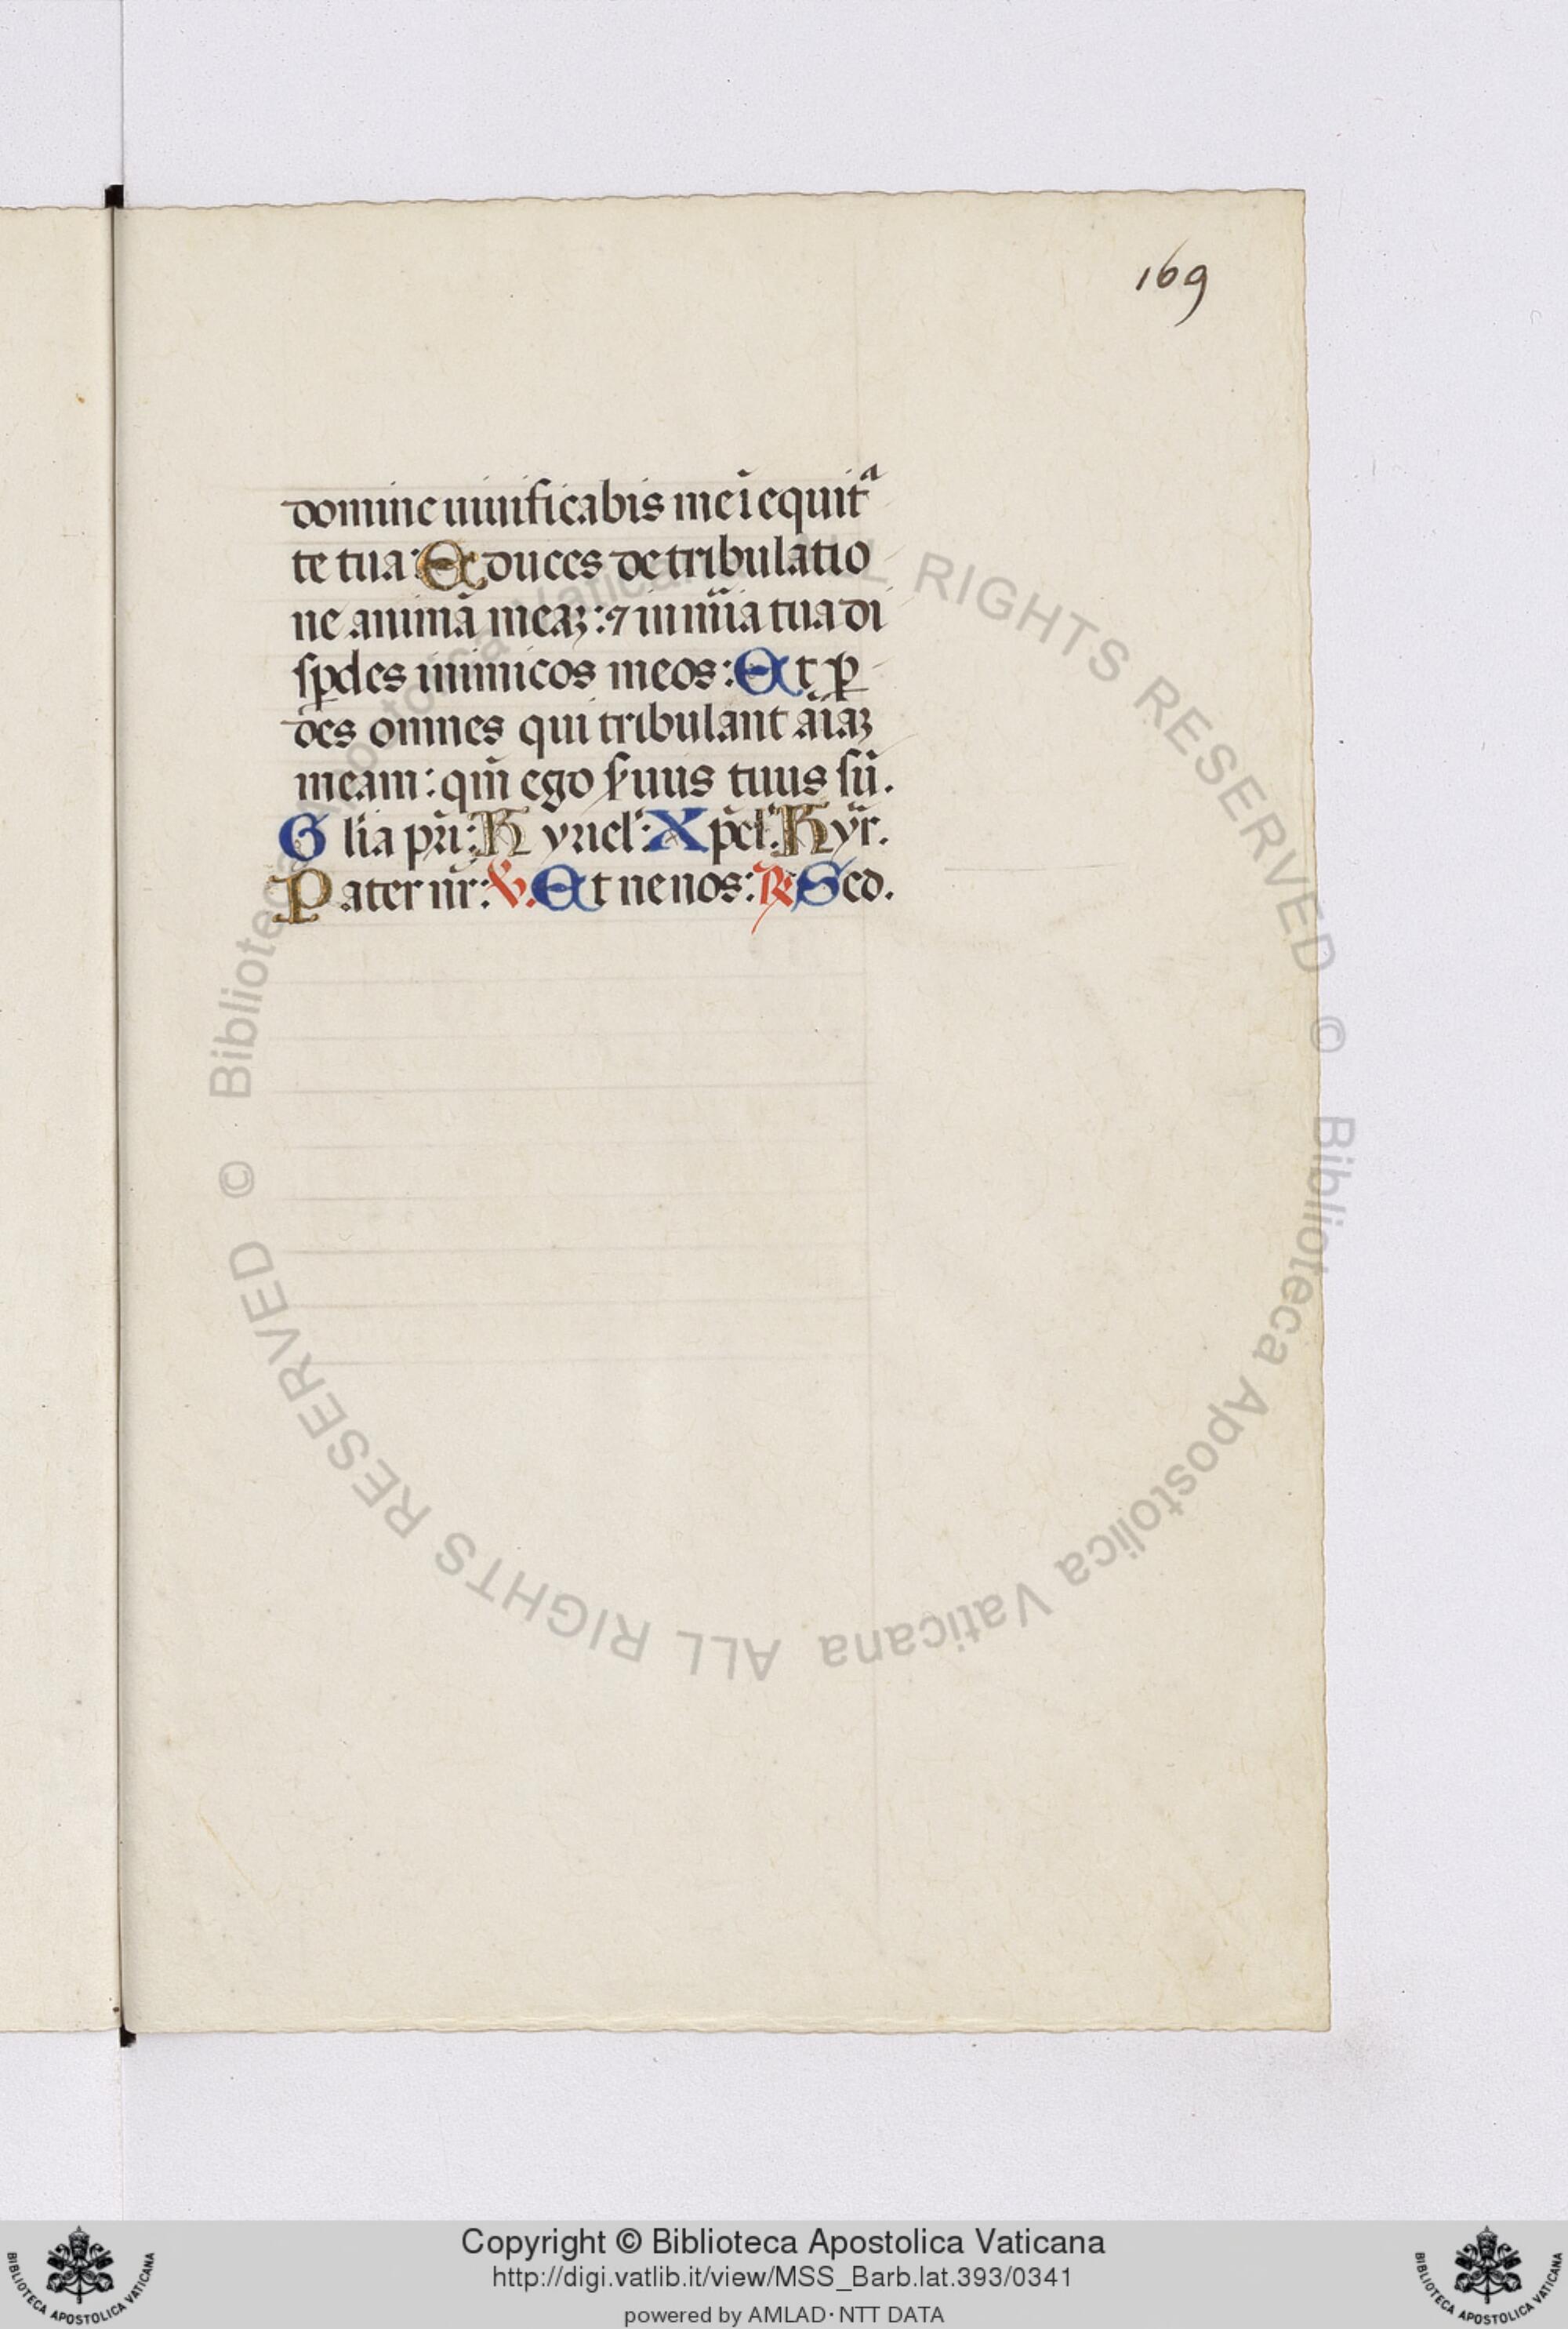 169
domine uiuificabis me ī equitᵃ
te tua: Educes de tribulatio
ne animā meaꝫ: ⁊ in mīa tua di
sꝑdes inimicos meos: Et ꝑ
des omnes qui tribulant aīaꝫ
meam: qm̄ ego s̄uus tuus sū.
Glīa pri: Kyriel': Xpel'. Kyr.
Pater nr̄: ℣. Et ne nos: ℟ Sed.
© Biblioteca Apostolica Vaticana ALL RIGHTS RESERVED © Biblioteca Apostolica Vaticana ALL RIGHTS RESERVED
Copyright © Biblioteca Apostolica Vaticana
http://digi.vatlib.it/view/MSS_Barb.lat.393/0341
powered by AMLAD·NTT DATA
BIBLIOTECA APOSTOLICA VATICANA
BIBLIOTECA APOSTOLICA VATICANA